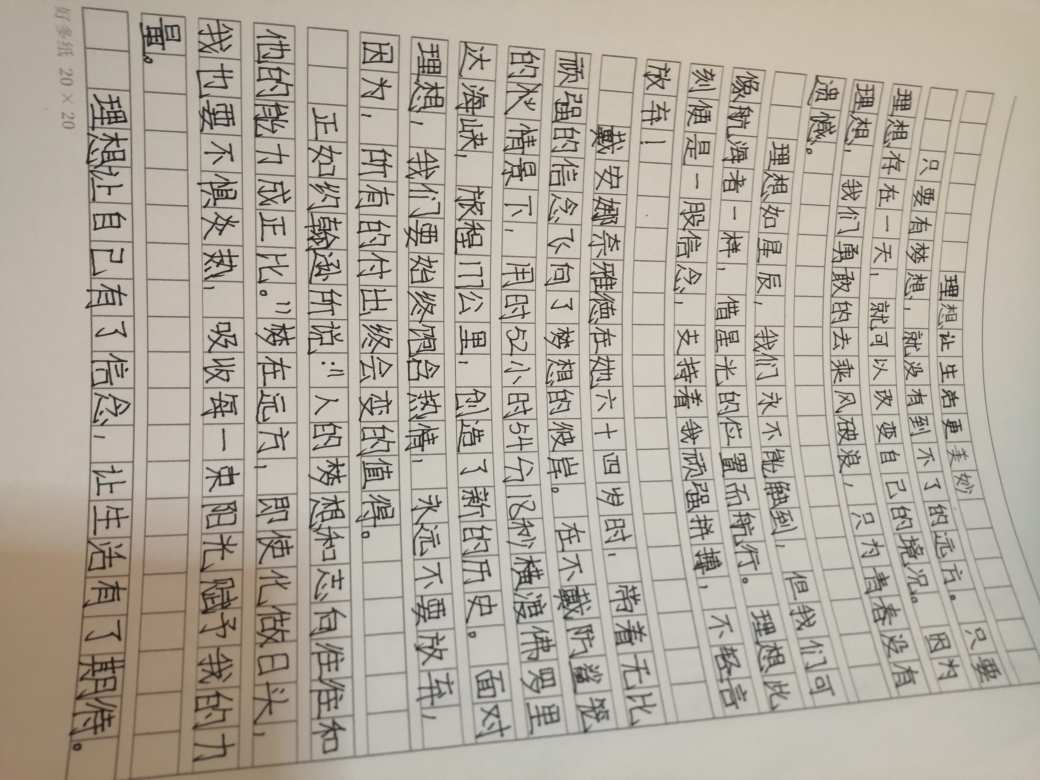 理想让生活更美妙
只要有梦想，就没有到不了的远方。只要
理想存在一天，就可以改变自己的境况。因为
理想，我们勇敢的去乘风破浪，只为青春没有
遗憾。
理想如星辰，我们永不能触到，但我们可
像航海者一样，借星光的位置而航行。理想此
刻便是一股信念，支持着我顽强拼搏，不轻言
放弃！
戴安娜奈雅德在她六十四岁时，带着无比
顽强的信念飞向了梦想的彼岸。在不戴防鲨笼
的情景下，用时52小时54分18秒横渡佛罗里
达海峡，旅程177公里，创造了新的历史。面对
理想，我们要始终饱含热情，永远不要放弃，
因为，所有的付出终会变的值得。
正如约翰逊所说：“人的梦想和志向往往和
他的能力成正比。”梦在远方，即使化做日头，
我也要不惧炎热，吸收每一束阳光赋予我的力
量。
理想让自己有了信念，让生活有了期待。
好多纸 20×20